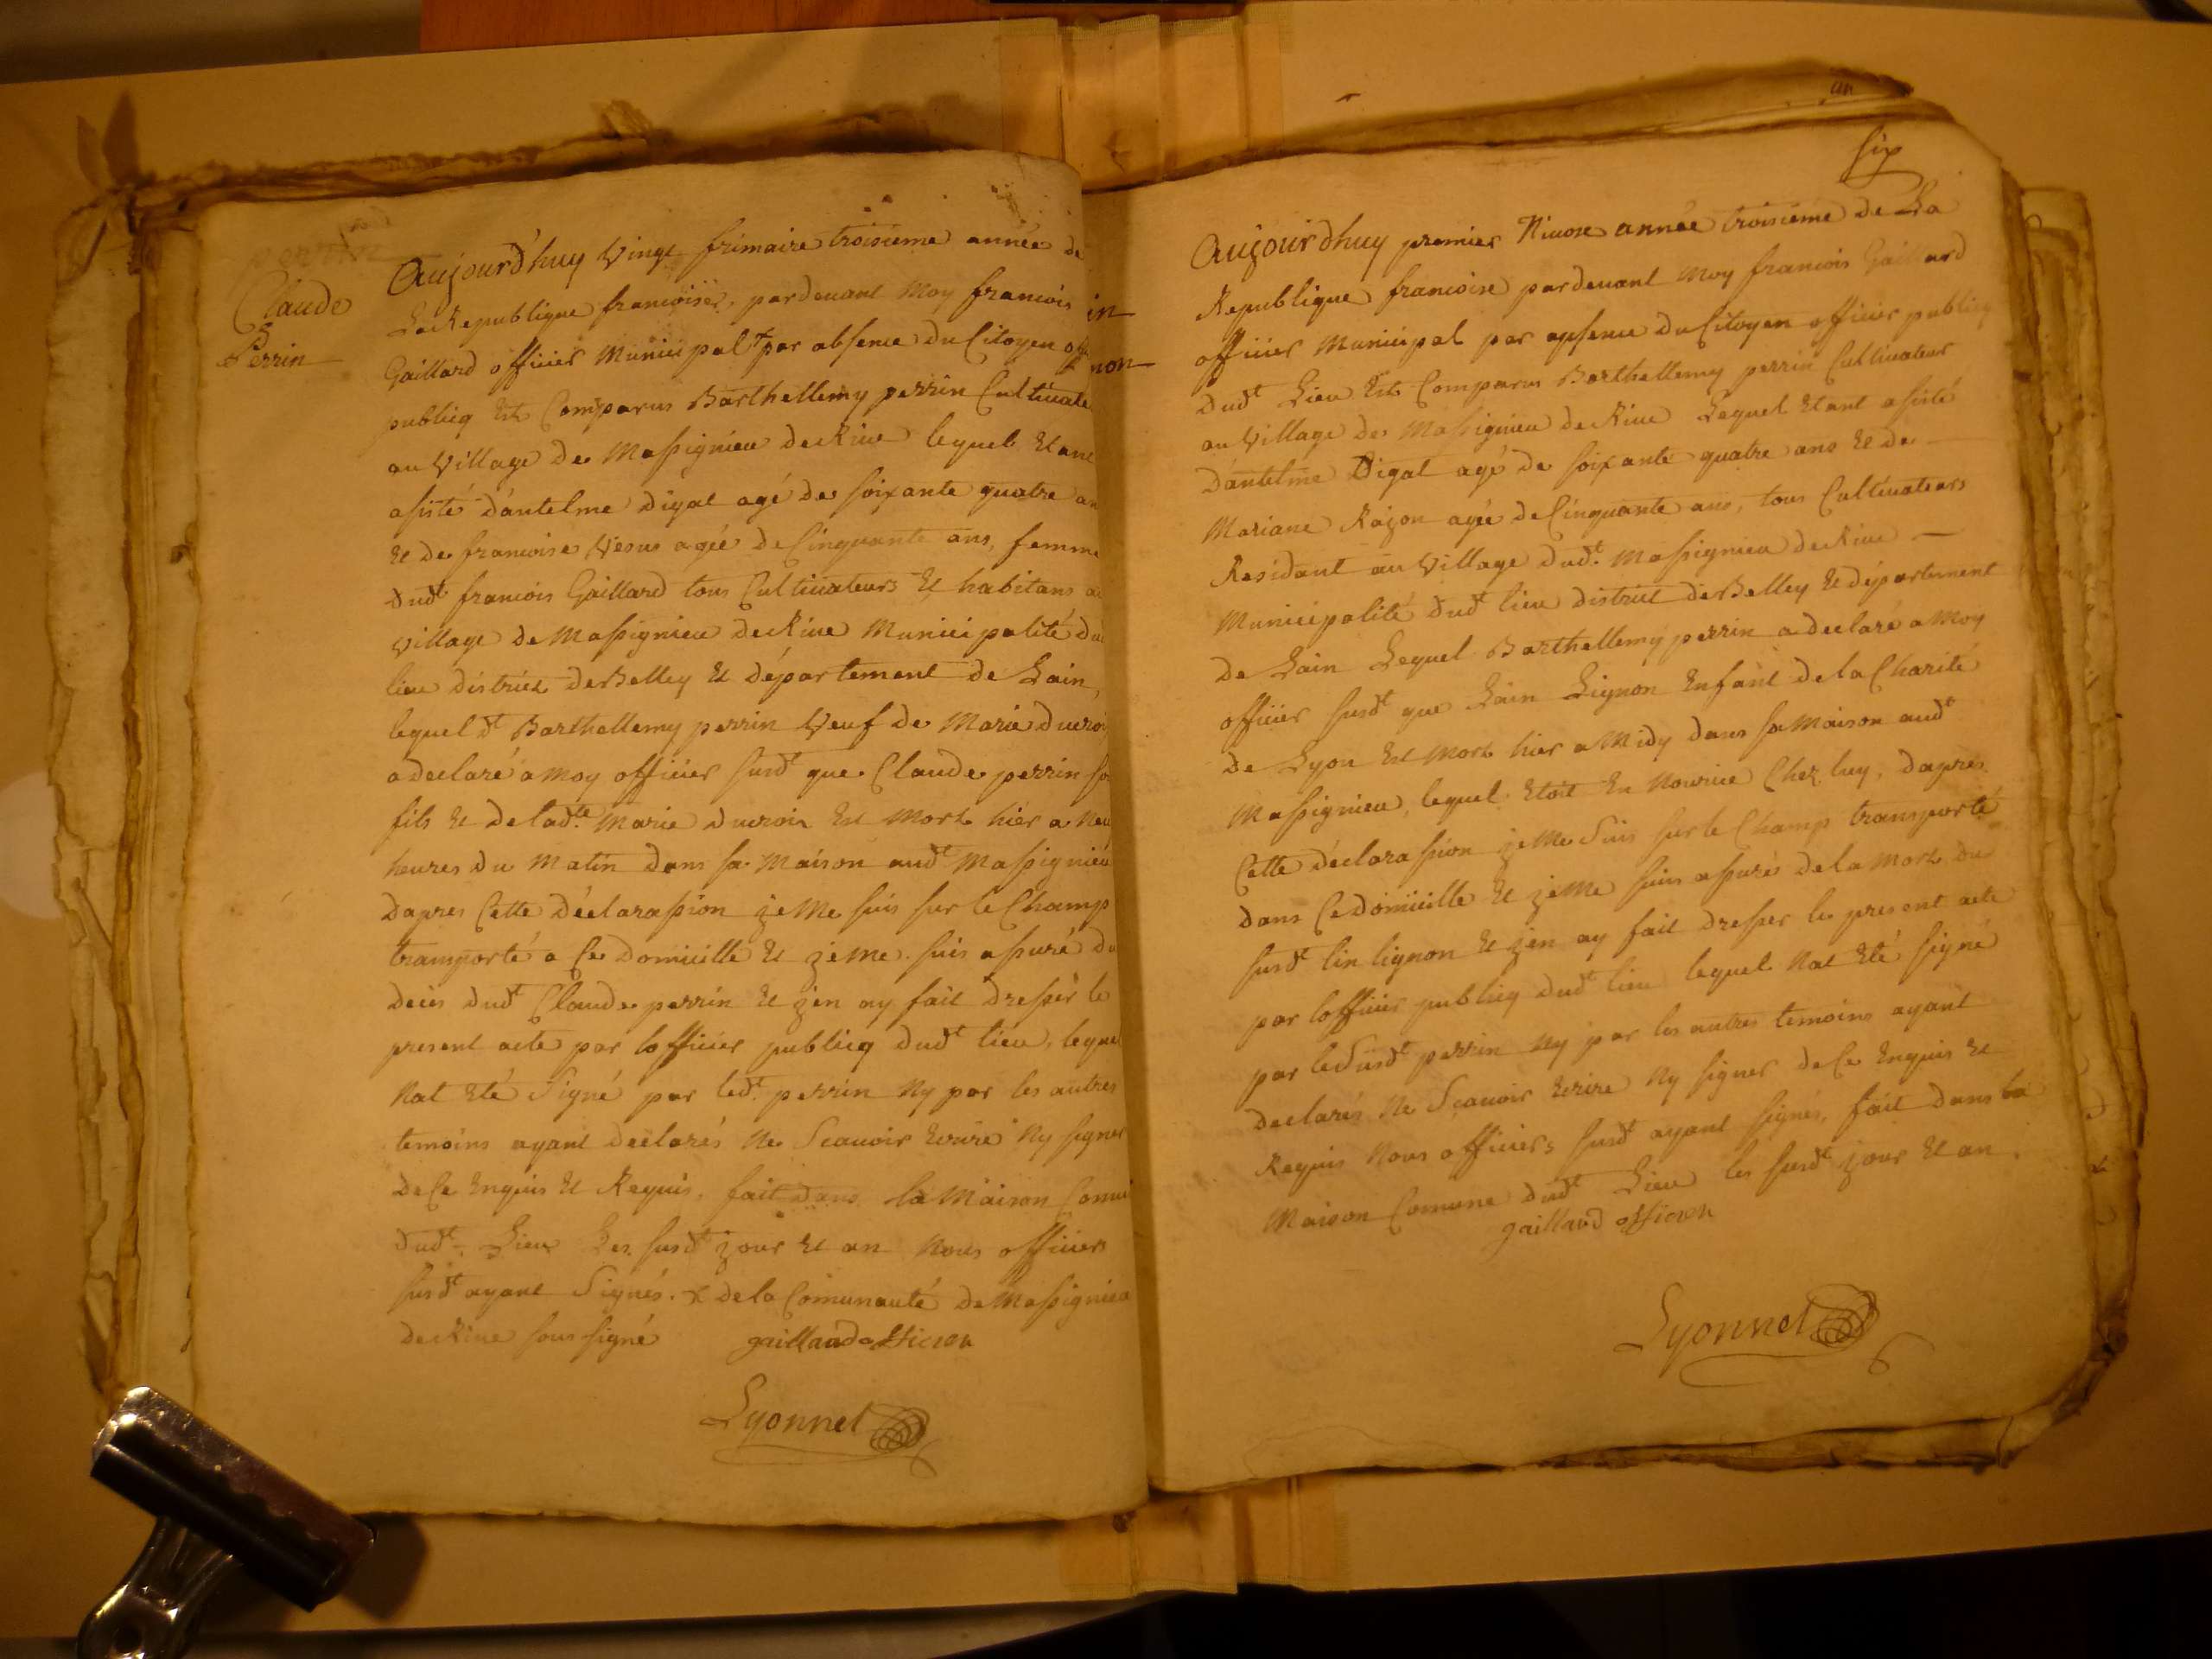 Claude
Perrin
Aujourd'huy Vingt frimaire troisieme année de
La Republique francoise, pardevant Moy francois
Gaillard officier Municipal + par absence du Citoyen off
publicq Est Comparus Barthellemy perrin Cultivate
au Village de Massignieu de Rive lequel Etant
asisté d'antelme digat agé de soixante quatre an
Et de francoise agée de Cinquante ans, femme
dudt francois Gaillard tous Cultivateurs Et habitans au
village de Massignieu de Rive Municipalité du
lieu district de Belley Et département de Lain,
lequel dt Barthellemy perrin Veuf de Marie ducroi
a declaré a Moy officier susdt que Claude perrin so
fils Et de ladte Marie ducroix Est Mort hier a Neu
heures du Matin dans sa Maison audt Massignieu
dapres Cette déclarassion je Me suis sur le Champ
transporté a Ce domicille Et je Me suis assuré du
deces dudt Claude perrin Et j'en ay fait dresser le
present acte par lofficier publicq dudt lieu, lequel
Nat Eté Signé par ledt perrin Ny par les autres
temoins ayant declarés Ne Scavoir Ecrire Ny signer
de Ce Enquis Et Requis, fait dans la Maison Comu
dudt Lieu Les susdt jour Et an Nous officiers
susdt ayant Signés. x de la Comunauté de Massignieu
de Rive sous signé gaillard officier
Lyonnet
in
non
six
Aujourdhuy premier Nivose année troisieme de La
Republique francoise pardevant Moy francois Gaillard
officier Municipal par apsence du Citoyen officier publicq
dudt Lieu Est Comparus Barthellemy perrin Cultivateur
au Village de Massignieu de Rive Lequel Etant asisté
d'antelme Digat agé de soixante quatre ans Et de
Mariane Rajon agée de Cinquante ans, tous Cultivateurs
Residant au Village dudt Massignieu de Rive
Municipalité dudt lieu district de Belley Et département
de Lain Lequel Barthellemy perrin a declaré a Moy
officier susdt que Lain Lignon Enfant de la Charité
de Lyon Est Mort hier a Midy dans sa Maison audt
Massignieu, lequel Etoit En Nourice Chez luy, dapres
Cette déclarassion je Me Suis sur le Champ transporté
dans Ce domicille Et je Me suis assurés de la Mort du
susdt lin lignon Et j'en ay fait dresser le present acte
par lofficier publicq dudt lieu lequel Nat Eté signé
par le Susdt perrin Ny par les autres temoins ayant
declarés Ne Scavoir Ecrire Ny signer de Ce Enquis Et
Requis Nous officiers susdt ayant signés, fait dans la
Maison Comune dudt Lieu les susdt jour Et an.
gaillard officier
Lyonnet